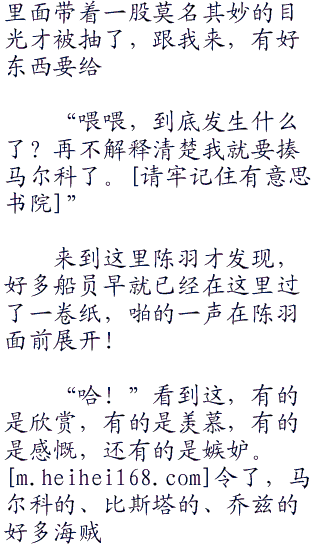 里面带着一股莫名其妙的目
光才被抽了，跟我来，有好
东西要给
“喂喂，到底发生什么
了？再不解释清楚我就要揍
马尔科了。[请牢记住有意思
书院]”
来到这里陈羽才发现，
好多船员早就已经在这里过
了一卷纸，啪的一声在陈羽
面前展开！
“哈！”看到这，有的
是欣赏，有的是羡慕，有的
是感慨，还有的是嫉妒。
[m.heihei168.com]令了，马
尔科的、比斯塔的、乔兹的
好多海贼